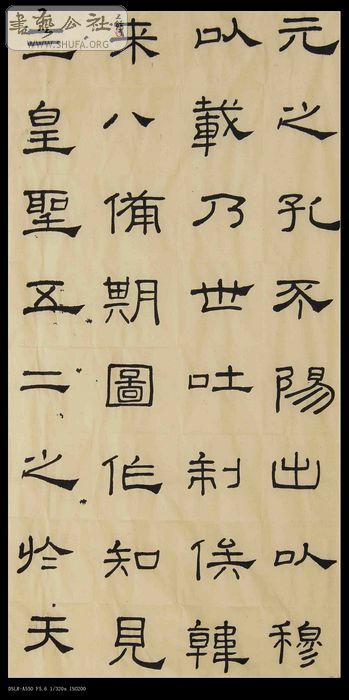 書藝公社
WWW.SHUFA.ORG
元之孔不陽出以穆
以載乃世吐制俟韓
来八備期圖作知見
三皇聖五二之於天
DSLR-A550 F5.6 1/320s ISO200